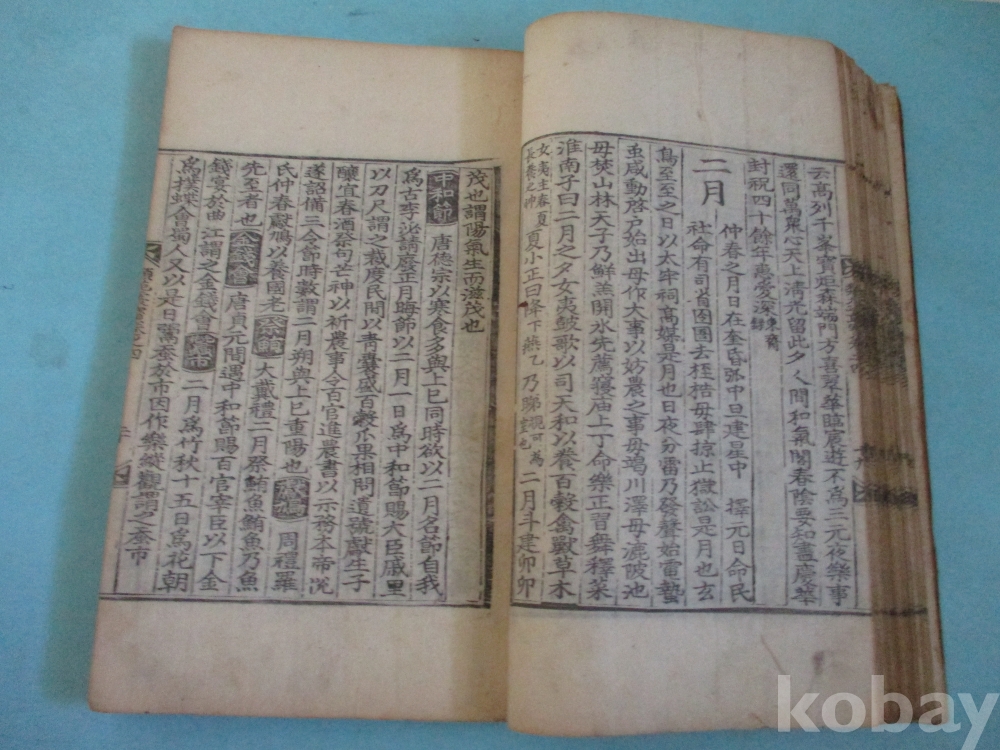 云高列千峯寶炬森端門方喜翠華臨宸遊不爲三元夜樂事
還同萬衆心天上清光留此夕人間和氣閣春陰要知盡慶華
封祝四十餘年惠愛深
二月
仲春之月日在奎昏弧中旦建星中 擇元日命民
社命有司省囹圄去桎梏毋肆掠止獄訟是月也玄
鳥至至之日以太牢祠高媒是月也日夜分雷乃發聲始電蟄
虫咸動啓戶始出毋作大事以妨農之事毋竭川澤毋漉陂池
毋焚山林天子乃鮮羔開冰先薦寢庙上丁命樂正習舞釋菜
淮南子曰二月之夕女夷鼓歌以司天和以養百穀禽獸草木
女夷主春夏
長養之神
夏小正曰降下燕乙乃睇 二月斗建卯卯
茂也謂陽氣生而滋茂也
中和節 唐德宗以寒食多與上巳同時欲以二月名節自我
爲古李泌請廢正月晦節以二月一日爲中和節賜大臣戚里
以刀尺謂之裁度民間以青囊盛百穀瓜果相問遺號獻生子
釀宜春酒祭句芒神以祈農事令百官進農書以示務本帝悦
遂詔備三令節時數謂二月朔與上巳重陽也 周禮羅
氏仲春獻鳩以養國老 大戴禮二月祭鮪魚鮪魚乃魚
先至者也 金錢會 唐貞元間遇中和節賜百官宰臣以下金
錢宴於曲江謂之金錢會 二月爲竹秋十五日爲花朝
爲撲蝶會蜀人又以是日鬻蚕於市因作樂縱觀謂之蚕市
kobay